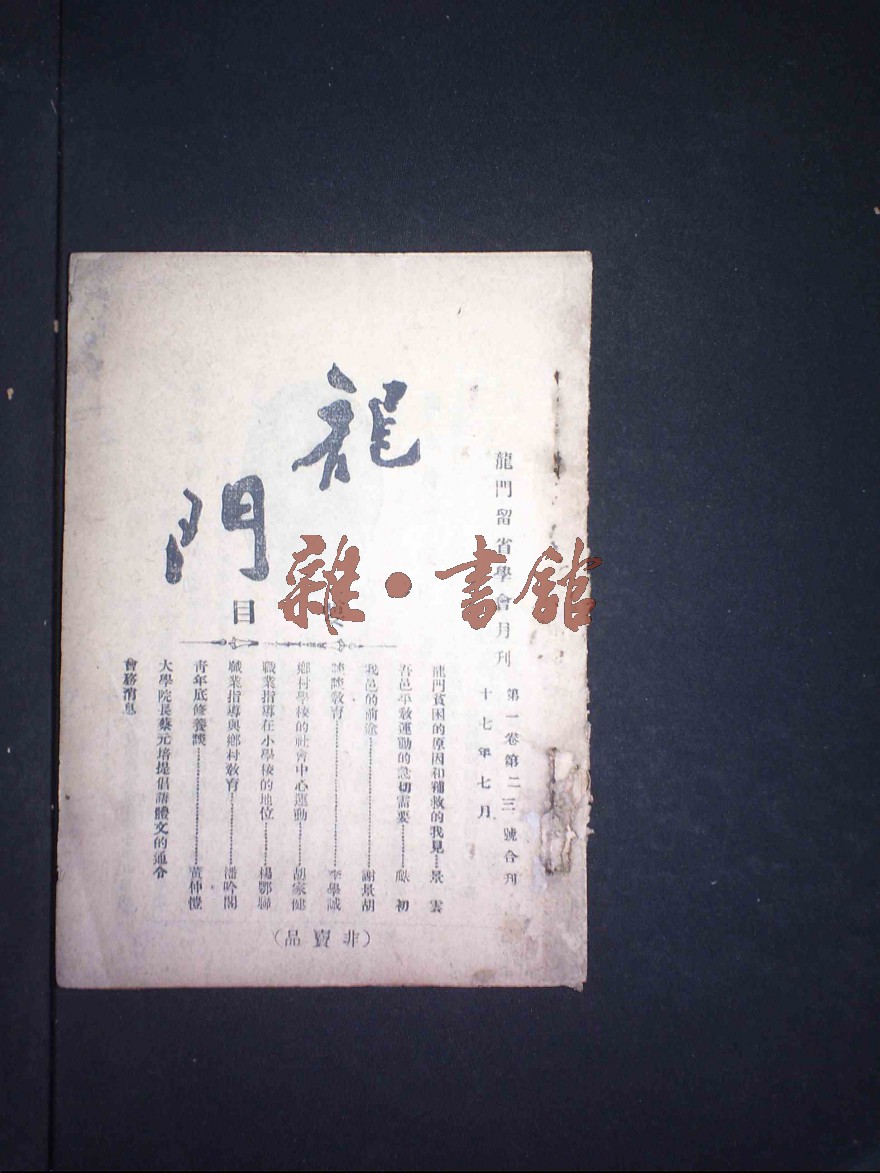 龍門留省學會月刊
第一卷第二三號合刊
十七年七月
龍門
目
龍門貧困的原因和補救的我見……景雲
吾邑平敎運動的急切需要……初
我邑的前途……謝景胡
談談敎育……李學誠
鄉村學校的社會中心運動……胡家健
職業指導在小學校的地位……楊鄂聯
職業指導與鄉村敎育……潘吟閣
靑年底修養談……黃仲愷
大學院長蔡元培提倡語體文的通令
會務消息
（非賣品）
雜·書館